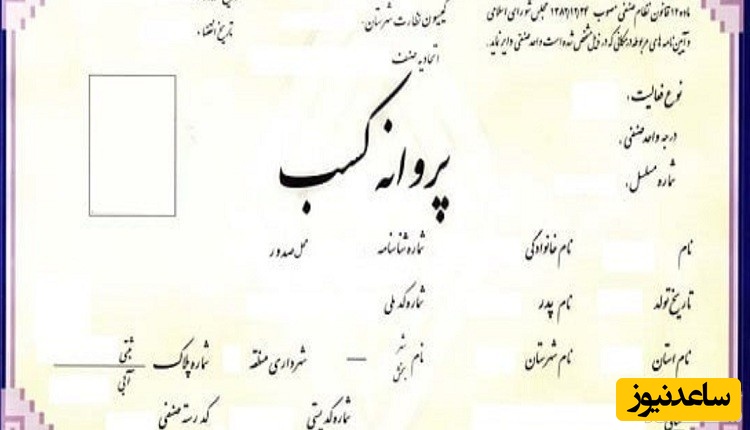 ماده ۱۲ قانون نظام صنفی مصوب ۱۳۸۲/۱۲/۲۴ مجلس شورای اسلامی
و آیین نامه های مربوطه در مکانی که در ذیل مشخص شده است واحد صنفی دایر نماید.
کمیسیون نظارت شهرستان:
تاریخ انقضاء :
اتحادیه صنف
نوع فعالیت :
درجه واحد صنفی :
شماره مسلسل :
پروانه کسب
نام نام خانوادگی شماره شناسنامه محل صدور
تاریخ تولد نام پدر شماره کد ملی
نام استان نام شهرستان نام شهر بخش شهرداری منطقه شماره پلاک ثبتی آبی
شماره کد پستی کد رسته صنفی
ساعدنیوز